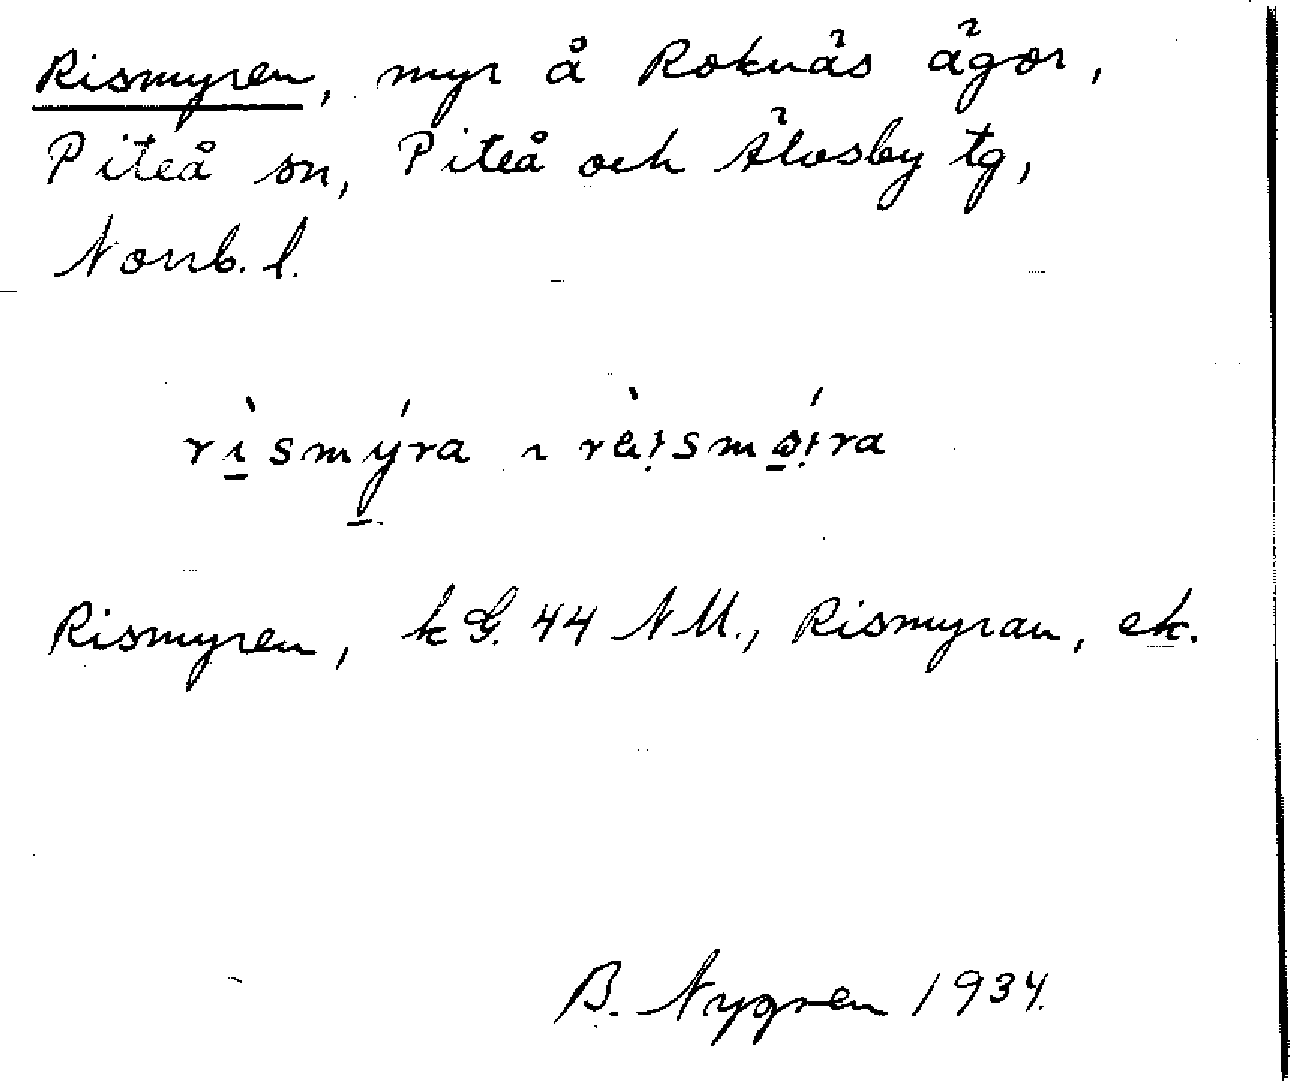 Rismyren, myr å Roknäs ägor,
Piteå sn, Piteå och Älvsby tg,
Norrb. l.
rìsmýra ı
Rismyren, k G. 44 NM., Rismyran, ek.
B. Nygren 1934.